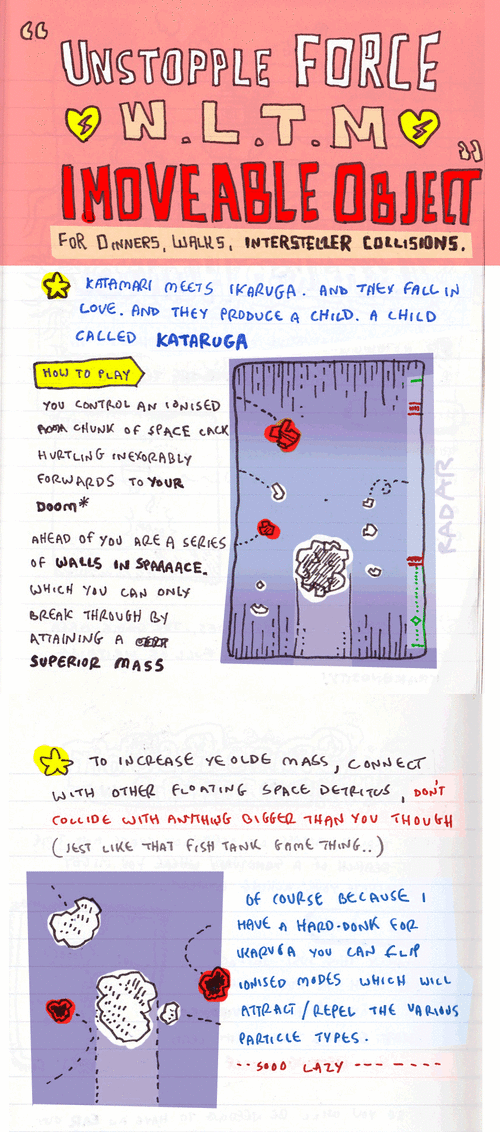 “
UNSTOPPLE FORCE
W.L.T.M
IMOVEABLE OBJECT
”
FOR DINNERS, WALKS, INTERSTELLER COLLISIONS.
KATAMARI MEETS IKARUGA. AND THEY FALL IN
LOVE. AND THEY PRODUCE A CHILD. A CHILD
CALLED KATARUGA
HOW TO PLAY
YOU CONTROL AN IONISED
CHUNK OF SPACE CACK
HURTLING INEXORABLY
FORWARDS TO YOUR
DOOM*
AHEAD OF YOU ARE A SERIES
OF WALLS IN SPAAAACE.
WHICH YOU CAN ONLY
BREAK THROUGH BY
ATTAINING A
SUPERIOR MASS
RADAR
TO INCREASE YE OLDE MASS, CONNECT
WITH OTHER FLOATING SPACE DETRITUS, DON'T
COLLIDE WITH ANYTHING BIGGER THAN YOU THOUGH
(JEST LIKE THAT FISH TANK GAME THING..)
OF COURSE BECAUSE I
HAVE A HARD-DONK FOR
IKARUGA YOU CAN FLIP
IONISED MODES WHICH WILL
ATTRACT/REPEL THE VARIOUS
PARTICLE TYPES.
--SOOO LAZY --- - ----